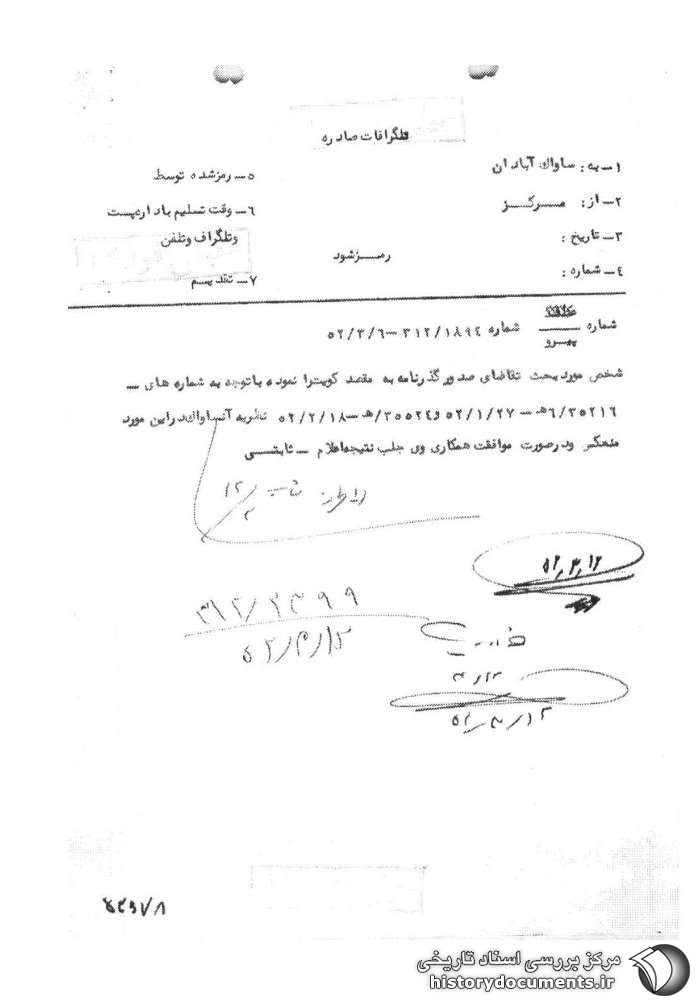 تلگرافات صادره
۱ـ به: ساواك آبادان
۲ـ از: مرکز
۳ـ تاریخ:
۴ـ شماره:
رمز شود
۵ـ رمز شده توسط
۶ـ وقت تسلیم باداره پست
وتلگراف وتلفن
۷ـ تقدیم
شماره
پیرو شماره ۳۱۲/۱۸۹۴ـ۵۲/۳/۶
شخص مورد بحث تقاضای صدور گذرنامه به مقصد کویت را نموده باتوجه به شماره های ـ
۶/۳۵۲۱۶هـ ـ ۵۲/۱/۲۷ و ۳۵۵۲۴/هـ ـ۵۲/۲/۱۸ نظریه آنساواك دراین مورد
منعکس ودرصورت موافقت همکاری وی جلب نتیجه اعلام ـ ثابتی
۱۲/۳
۵۲/۳/۱۲
۳۱۲/۲۳۹۹
۵۲/۳/۱۲
۳/۱۲
۵۲/۳/۱۲
مرکز بررسی اسناد تاریخی
historydocuments.ir